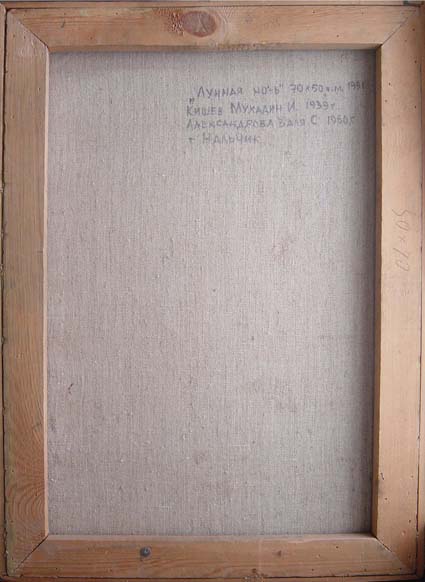 "Лунная ночь" 70×50 х.м. 1991
Кишев Мухадин И. 1939 г.
Александрова Валя С. 1960 г.
г. Нальчик
50×70